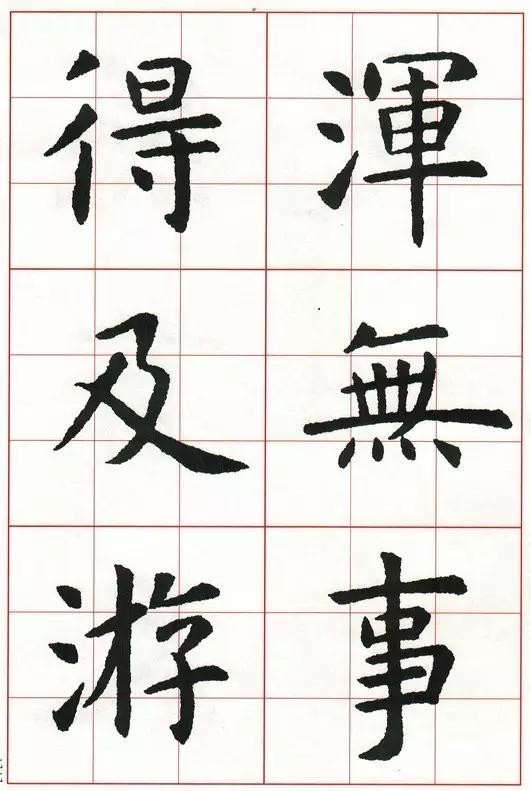 渾無事
得及游